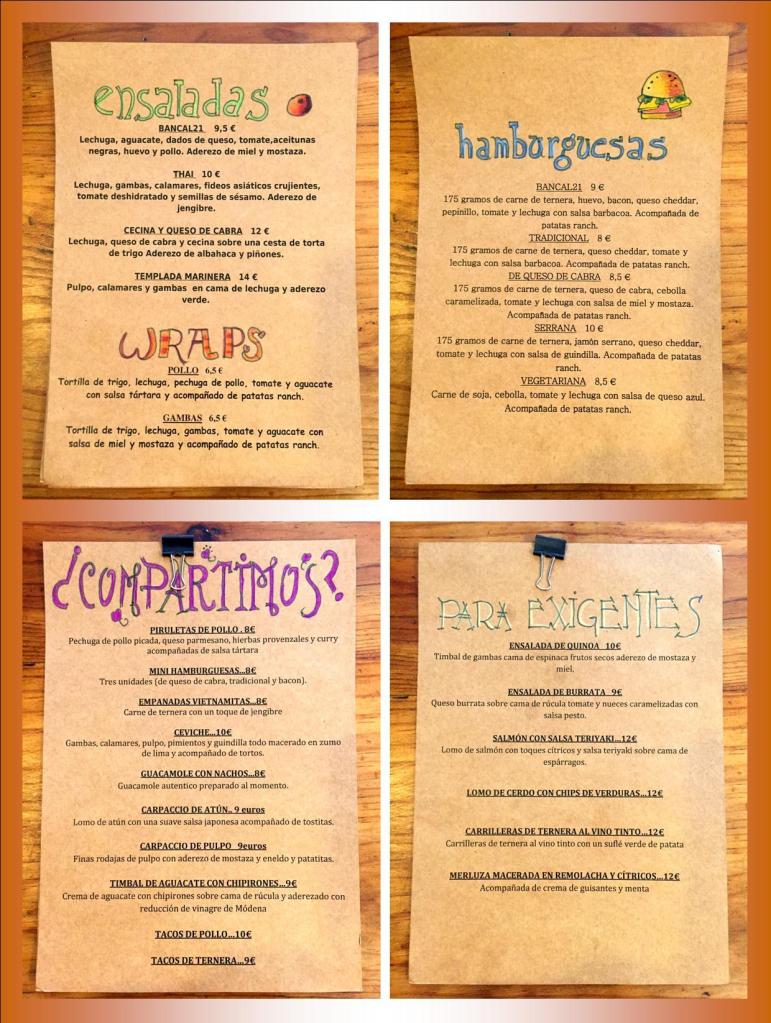 ensaladas
BANCAL21 9,5 €
Lechuga, aguacate, dados de queso, tomate,aceitunas
negras, huevo y pollo. Aderezo de miel y mostaza.
THAI 10 €
Lechuga, gambas, calamares, fideos asiáticos crujientes,
tomate deshidratado y semillas de sésamo. Aderezo de
jengibre.
CECINA Y QUESO DE CABRA 12 €
Lechuga, queso de cabra y cecina sobre una cesta de torta
de trigo Aderezo de albahaca y piñones.
TEMPLADA MARINERA 14 €
Pulpo, calamares y gambas en cama de lechuga y aderezo
verde.
WRAPS
POLLO 6,5 €
Tortilla de trigo, lechuga, pechuga de pollo, tomate y aguacate
con salsa tártara y acompañado de patatas ranch.
GAMBAS 6,5 €
Tortilla de trigo, lechuga, gambas, tomate y aguacate con
salsa de miel y mostaza y acompañado de patatas ranch.
hamburguesas
BANCAL21 9 €
175 gramos de carne de ternera, huevo, bacon, queso cheddar,
pepinillo, tomate y lechuga con salsa barbacoa. Acompañada de
patatas ranch.
TRADICIONAL 8 €
175 gramos de carne de ternera, queso cheddar, tomate y
lechuga con salsa barbacoa. Acompañada de patatas ranch.
DE QUESO DE CABRA 8,5 €
175 gramos de carne de ternera, queso de cabra, cebolla
caramelizada, tomate y lechuga con salsa de miel y mostaza.
Acompañada de patatas ranch.
SERRANA 10 €
175 gramos de carne de ternera, jamón serrano, queso cheddar,
tomate y lechuga con salsa de guindilla. Acompañada de patatas
ranch.
VEGETARIANA 8,5 €
Carne de soja, cebolla, tomate y lechuga con salsa de queso azul.
Acompañada de patatas ranch.
¿COMPARTIMOS?
PIRULETAS DE POLLO . 8€
Pechuga de pollo picada, queso parmesano, hierbas provenzales y curry
acompañadas de salsa tártara
MINI HAMBURGUESAS...8€
Tres unidades (de queso de cabra, tradicional y bacon).
EMPANADAS VIETNAMITAS...8€
Carne de ternera con un toque de jengibre
CEVICHE...10€
Gambas, calamares, pulpo, pimientos y guindilla todo macerado en zumo
de lima y acompañado de tortos.
GUACAMOLE CON NACHOS...8€
Guacamole autentico preparado al momento.
CARPACCIO DE ATÚN.. 9 euros
Lomo de atún con una suave salsa japonesa acompañado de tostitas.
CARPACCIO DE PULPO 9euros
Finas rodajas de pulpo con aderezo de mostaza y eneldo y patatitas.
TIMBAL DE AGUACATE CON CHIPIRONES...9€
Crema de aguacate con chipirones sobre cama de rúcula y aderezado con
reducción de vinagre de Módena
TACOS DE POLLO...10€
TACOS DE TERNERA...9€
PARA EXIGENTES
ENSALADA DE QUINOA 10€
Timbal de gambas cama de espinaca frutos secos aderezo de mostaza y
miel.
ENSALADA DE BURRATA 9€
Queso burrata sobre cama de rúcula tomate y nueces caramelizadas con
salsa pesto.
SALMÓN CON SALSA TERIYAKI...12€
Lomo de salmón con toques cítricos y salsa teriyaki sobre cama de
espárragos.
LOMO DE CERDO CON CHIPS DE VERDURAS...12€
CARRILLERAS DE TERNERA AL VINO TINTO...12€
Carrilleras de ternera al vino tinto con un suflé verde de patata
MERLUZA MACERADA EN REMOLACHA Y CÍTRICOS...12€
Acompañada de crema de guisantes y menta